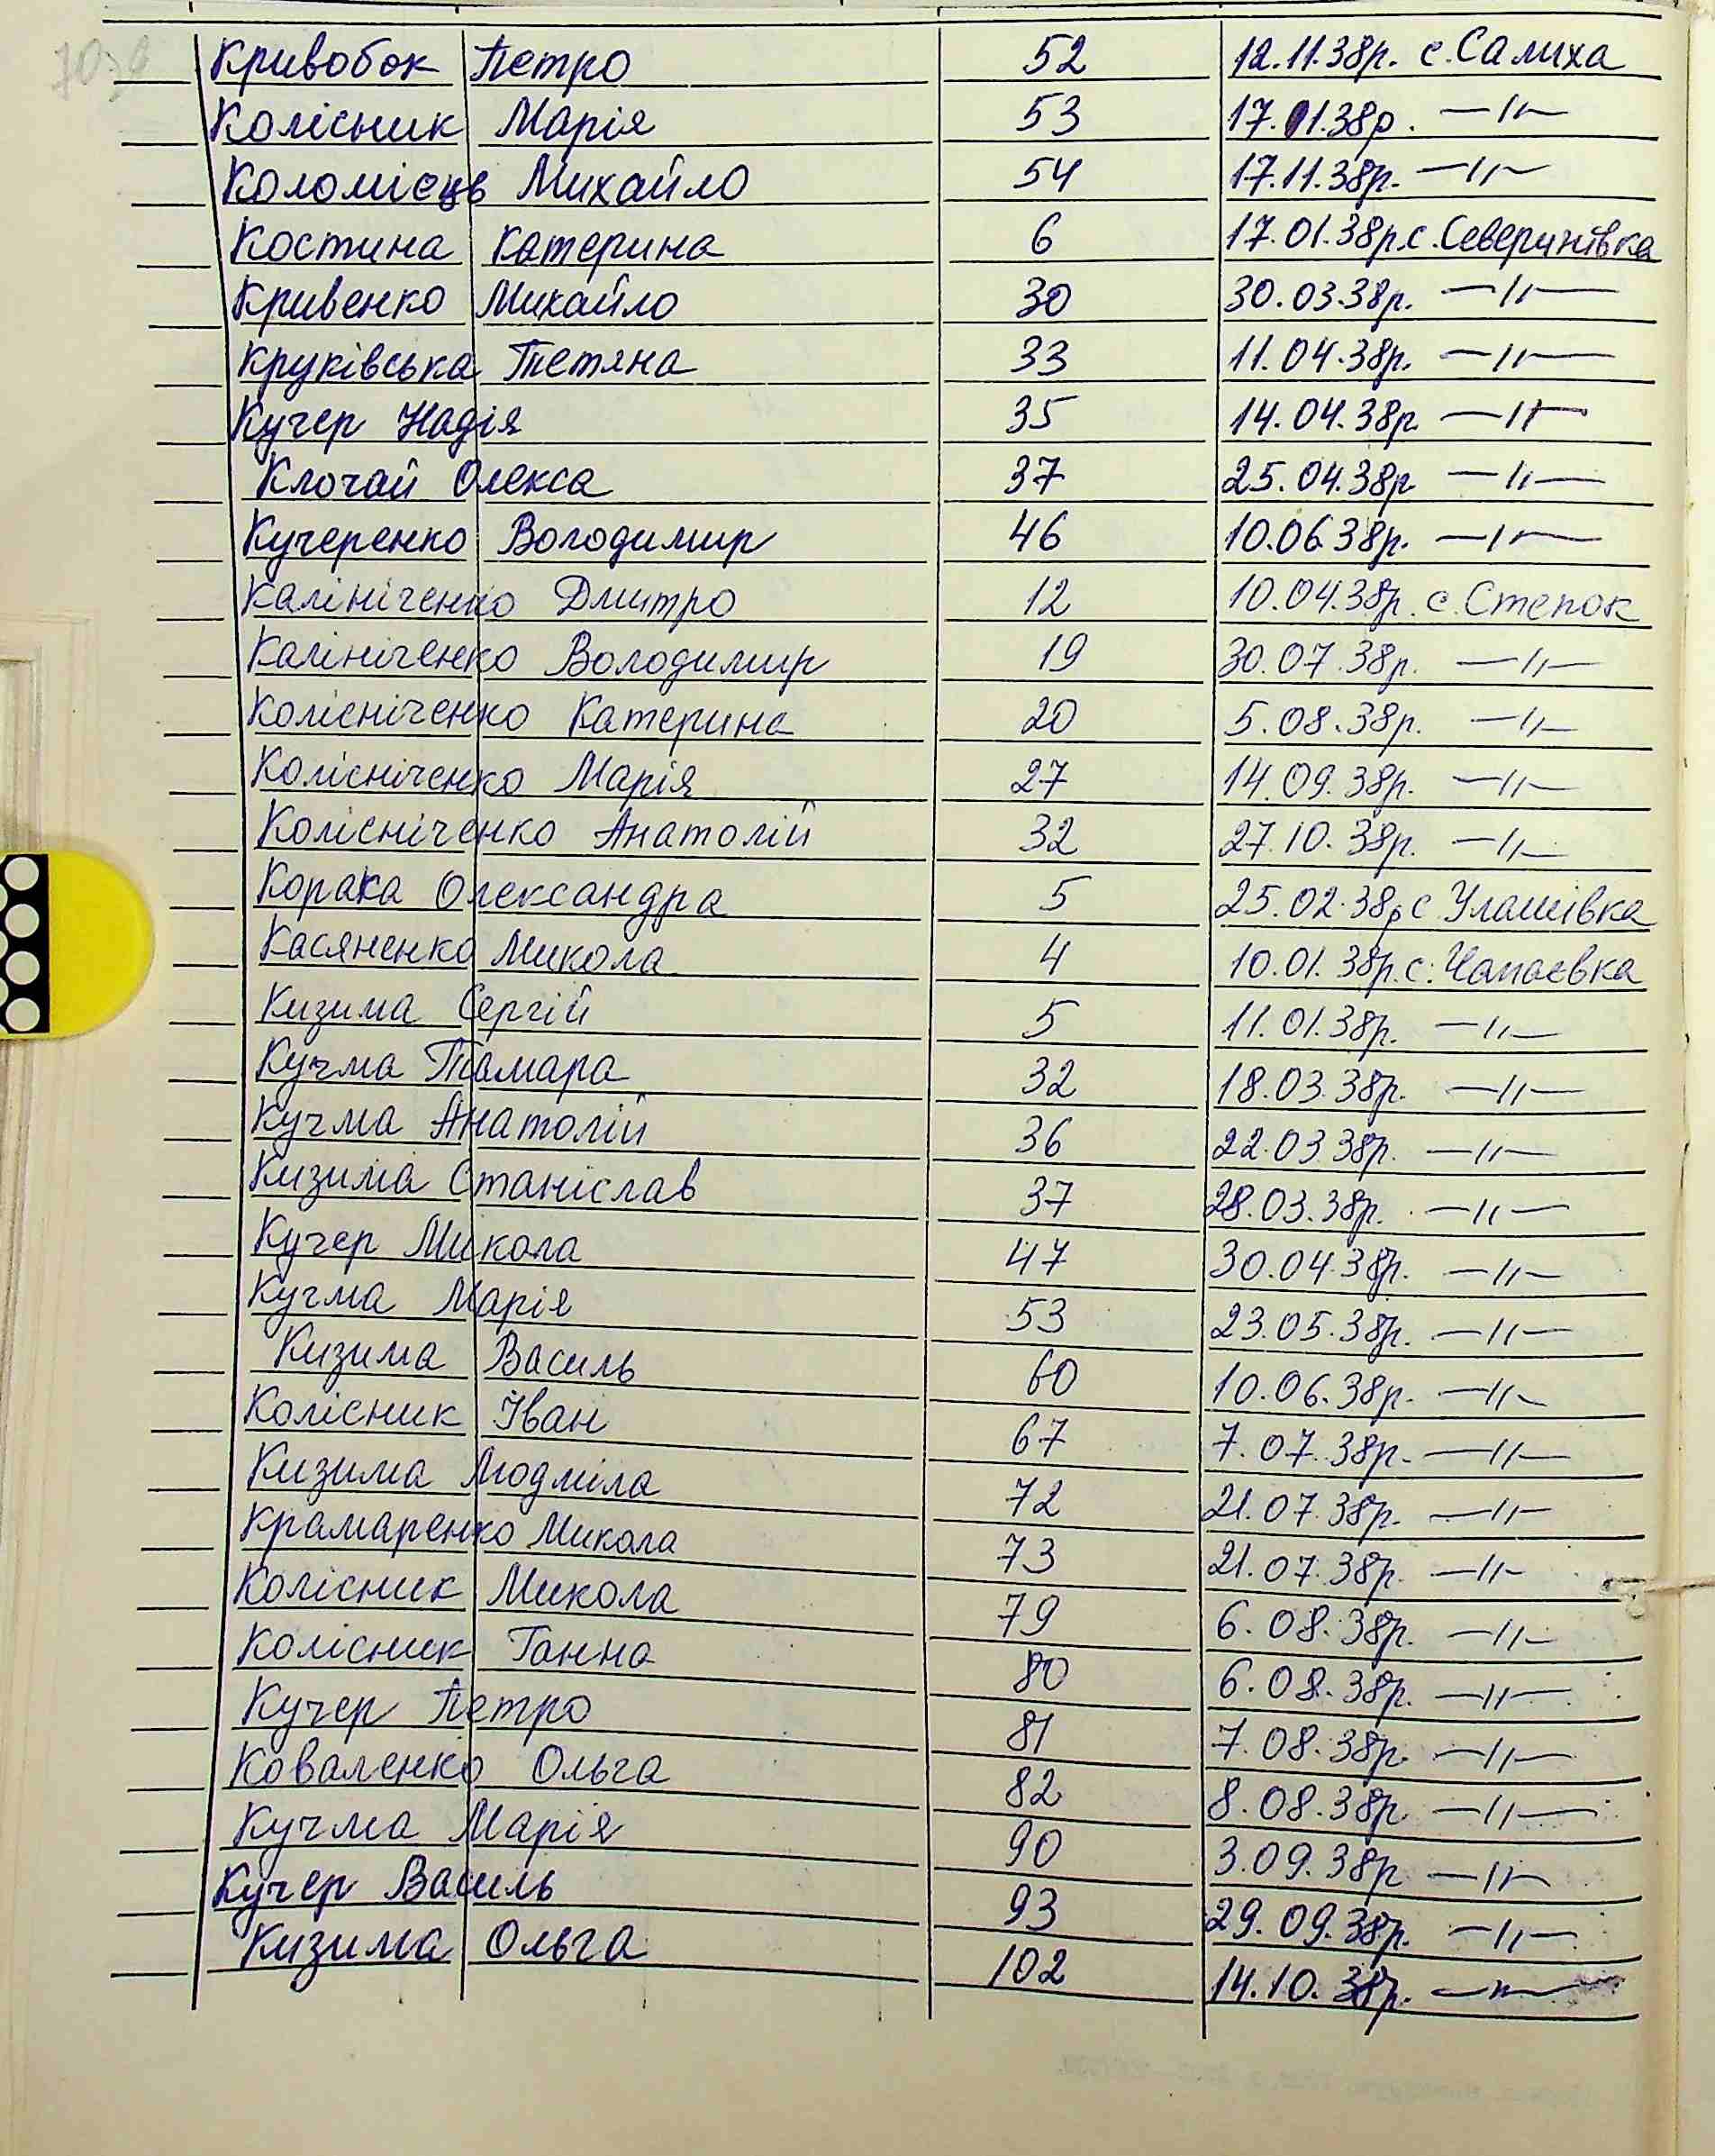 Кривобок Петро 52 12.11.38р. с. Салиха
Колісник Марія 53 17.11.38р. —"—
Коломієць Михайло 54 17.11.38р. —"—
Костина Катерина 6 17.01.38р. с. Северинівка
Кривенко Михайло 30 30.03.38р. —"—
Круківська Тетяна 33 11.04.38р. —"—
Кучер Надія 35 14.04.38р. —"—
Клочай Олекса 37 25.04.38р —"—
Кучеренко Володимир 46 10.06.38р. —"—
Калініченко Дмитро 12 10.04.38р. с. Степок
Калініченко Володимир 19 30.07.38р. —"—
Колісніченко Катерина 20 5.08.38р. —"—
Колісніченко Марія 27 14.09.38р. —"—
Колісніченко Анатолій 32 27.10.38р. —"—
Корака Олександра 5 25.02.38р с. Улашівка
Касяненко Микола 4 10.01.38р. с. Чапаєвка
Кизима Сергій 5 11.01.38р. —"—
Кучма Тамара 32 18.03.38р. —"—
Кучма Анатолій 36 22.03.38р. —"—
Кизима Станіслав 37 28.03.38р. —"—
Кучер Микола 47 30.04.38р. —"—
Кучма Марія 53 23.05.38р. —"—
Кизима Василь 60 10.06.38р. —"—
Колісник Іван 67 7.07.38р. —"—
Кизима Людміла 72 21.07.38р. —"—
Крамаренко Микола 73 21.07.38р. —"—
Колісник Микола 79 6.08.38р. —"—
Колісник Ганна 80 6.08.38р. —"—
Кучер Петро 81 7.08.38р. —"—
Коваленко Ольга 82 8.08.38р. —"—
Кучма Марія 90 3.09.38р —"—
Кучер Василь 93 29.09.38р. —"—
Кизима Ольга 102 14.10.38р. —"—